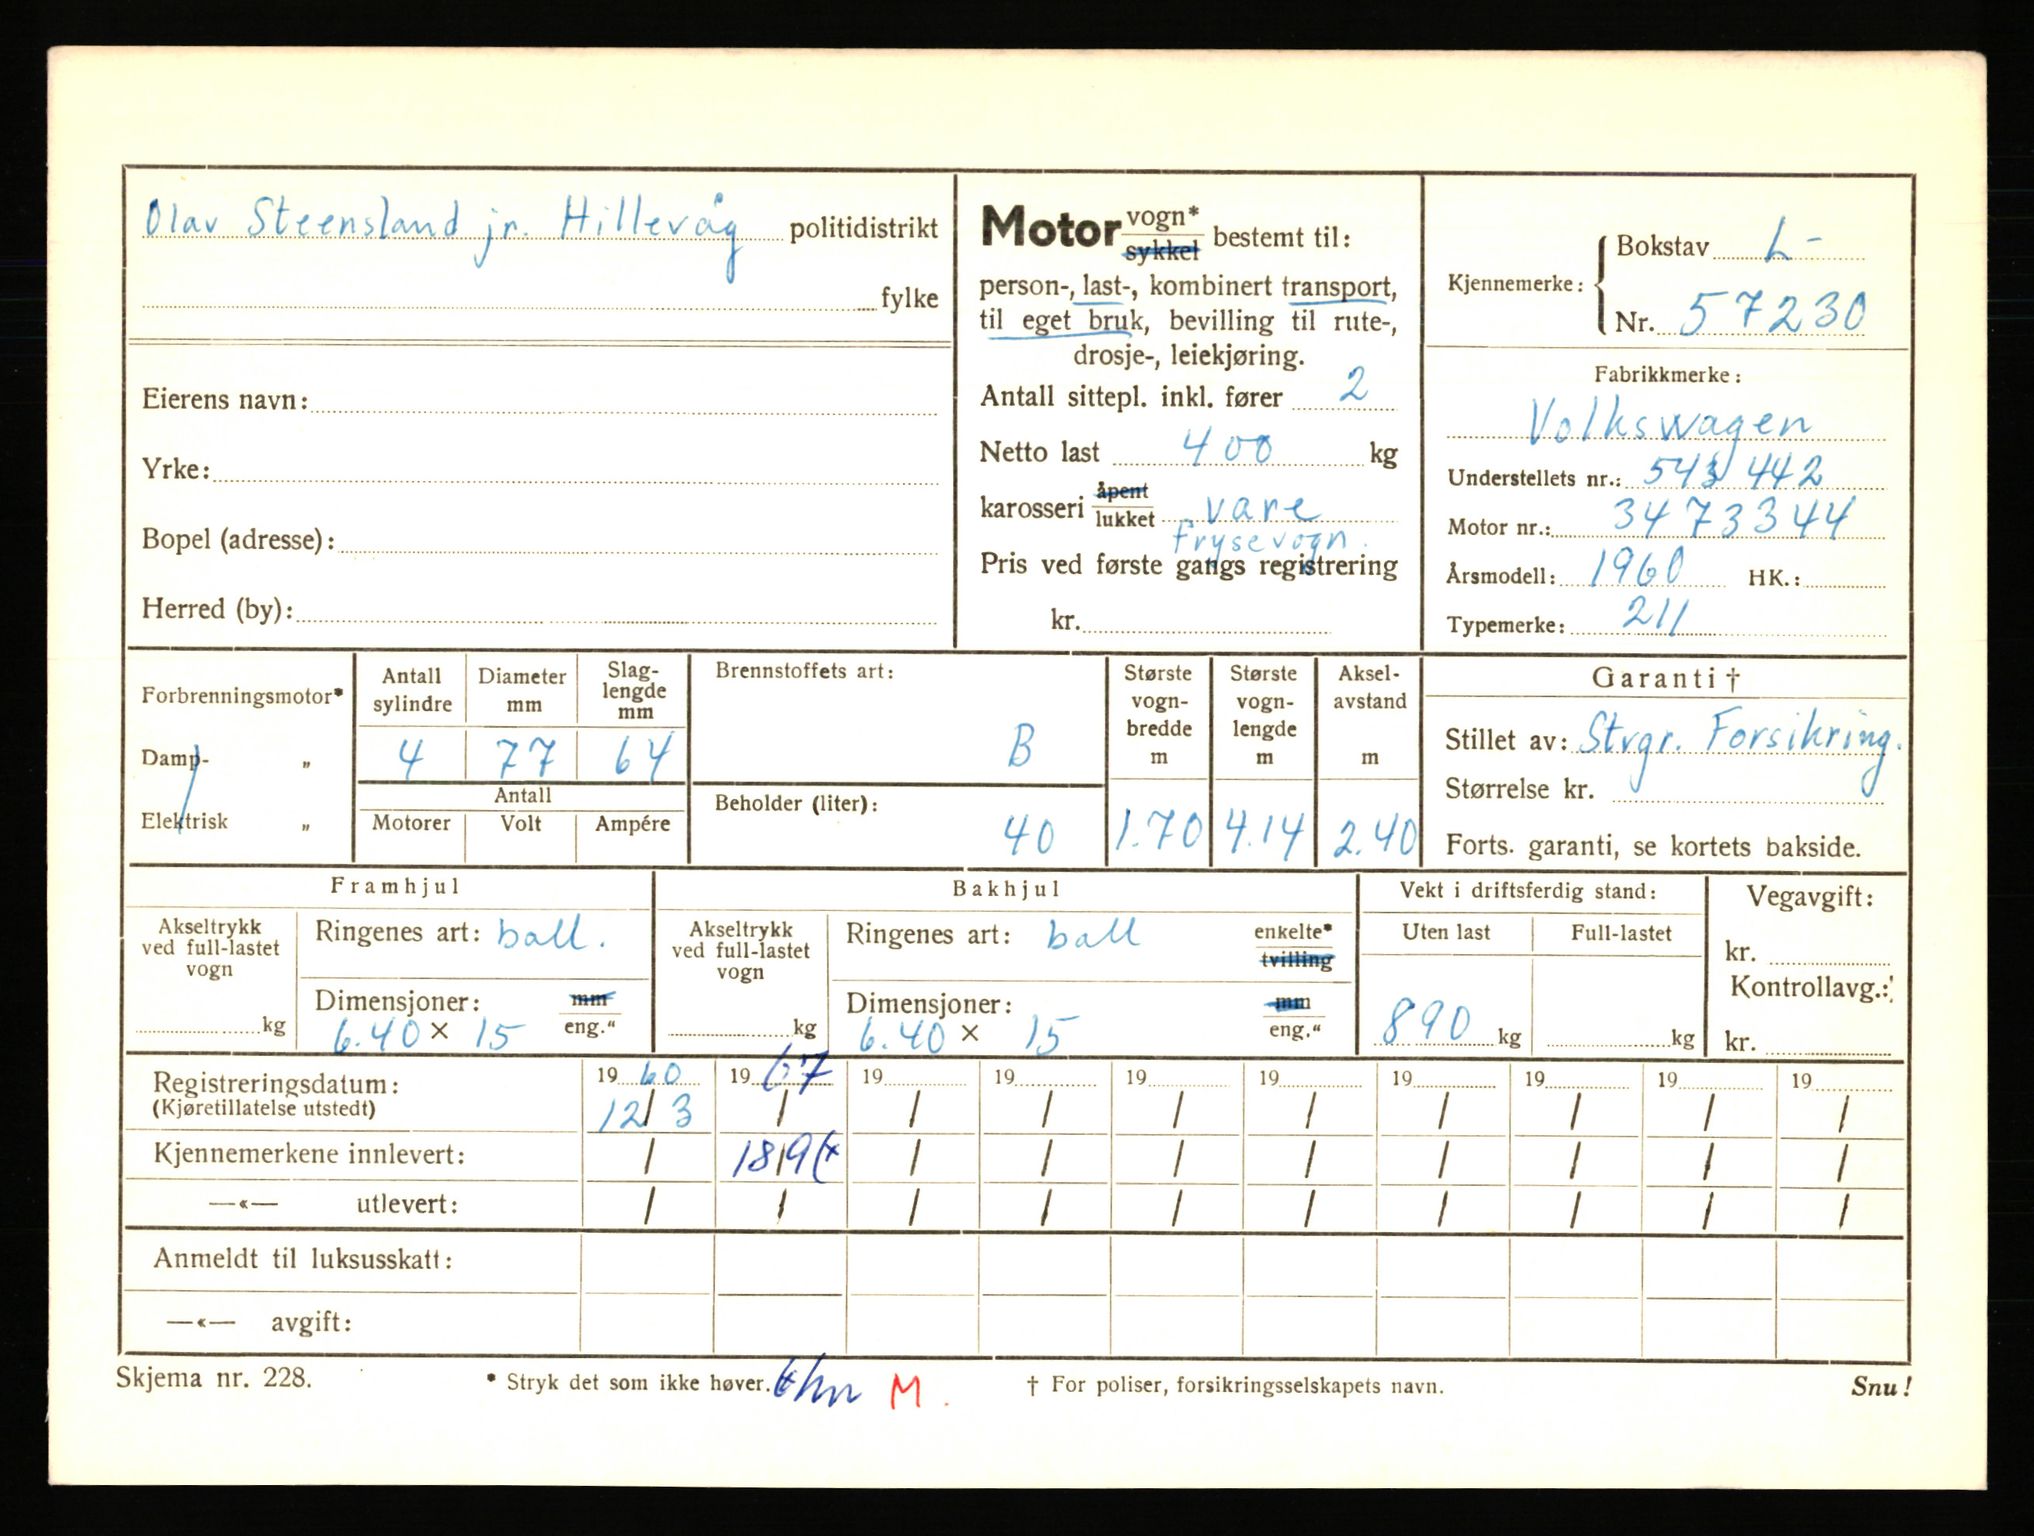 Olav Steensland jr. Hillevåg politidistrikt
fylke
Eierens navn:
Yrke:
Bopel (adresse):
Herred (by):
Motor vogn* sykkel bestemt til:
person-, last-, kombinert transport,
til eget bruk, bevilling til rute-,
drosje-, leiekjøring.
Antall sittepl. inkl. fører 2
Netto last 400 kg
karosseri åpent lukket vare
frysevogn.
Pris ved første gangs registrering
kr.
Kjennemerke: Bokstav L-
Nr. 57230
Fabrikkmerke:
Volkswagen
Understellets nr.: 543 442
Motor nr.: 3473344
Årsmodell: 1960 HK.:
Typemerke: 211
Forbrenningsmotor*
Damp- „
Elektrisk „
Antall sylindre Diameter mm Slag-lengde mm
4 77 64
Antall
Motorer Volt Ampére
Brennstoffets art:
B
Beholder (liter):
40
Største vogn-bredde m
1.70
Største vogn-lengde m
4.14
Aksel-avstand m
2.40
Garanti †
Stillet av: Stvgr. Forsikring.
Størrelse kr.
Forts. garanti, se kortets bakside.
Framhjul
Akseltrykk ved full-lastet vogn
kg
Ringenes art: ball.
Dimensjoner: mm
6.40 × 15 eng."
Bakhjul
Akseltrykk ved full-lastet vogn
kg
Ringenes art: ball enkelte*
tvilling
Dimensjoner: mm
6.40 × 15 eng."
Vekt i driftsferdig stand:
Uten last Full-lastet
890 kg kg
Vegavgift:
kr.
Kontrollavg.:
kr.
Registreringsdatum: 1960 1967 19 19 19 19 19 19 19 19
(Kjøretillatelse utstedt) 12/3 / / / / / / / / /
Kjennemerkene innlevert: / 18/9 / / / / / / / /
—«— utlevert: / / / / / / / / / /
Anmeldt til luksusskatt:
—«— avgift:
Skjema nr. 228. * Stryk det som ikke høver. M. † For poliser, forsikringsselskapets navn. Snu!